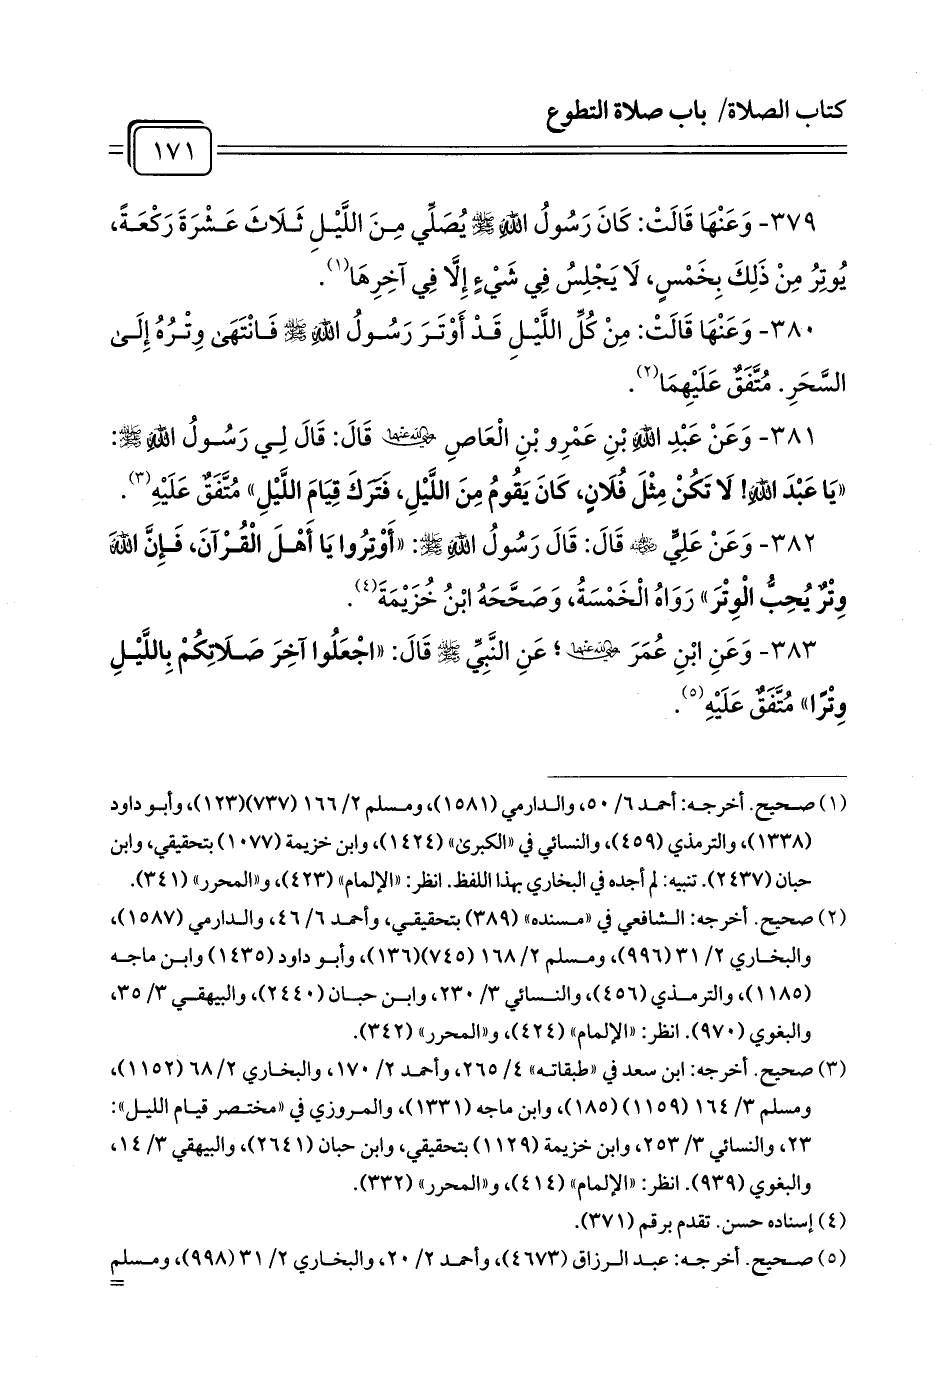 كتاب الصلاة/ باب صلاة التطوع
١٧١
٣٧٩- وَعَنْهَا قَالَتْ: كَانَ رَسُولُ اللهِ ﷺ يُصَلِّي مِنَ اللَّيْلِ ثَلَاثَ عَشْرَةَ رَكْعَةً،
يُوتِرُ مِنْ ذَلِكَ بِخَمْسٍ، لَا يَجْلِسُ فِي شَيْءٍ إِلَّا فِي آخِرِهَا(١).
٣٨٠- وَعَنْهَا قَالَتْ: مِنْ كُلِّ اللَّيْلِ قَدْ أَوْتَرَ رَسُولُ اللهِ ﷺ فَانْتَهَى وِتْرُهُ إِلَى
السَّحَرِ. مُتَّفَقٌ عَلَيْهِمَا(٢).
٣٨١- وَعَنْ عَبْدِ اللهِ بْنِ عَمْرِو بْنِ الْعَاصِ رضي الله عنهما قَالَ: قَالَ لِي رَسُولُ اللهِ ﷺ:
«يَا عَبْدَ اللهِ! لَا تَكُنْ مِثْلَ فُلَانٍ، كَانَ يَقُومُ مِنَ اللَّيْلِ، فَتَرَكَ قِيَامَ اللَّيْلِ» مُتَّفَقٌ عَلَيْهِ(٣).
٣٨٢- وَعَنْ عَلِيٍّ رضي الله عنه قَالَ: قَالَ رَسُولُ اللهِ ﷺ: «أَوْتِرُوا يَا أَهْلَ الْقُرْآنَ، فَإِنَّ اللهَ
وِتْرٌ يُحِبُّ الْوِتْرَ» رَوَاهُ الْخَمْسَةُ، وَصَحَّحَهُ ابْنُ خُزَيْمَةَ(٤).
٣٨٣- وَعَنِ ابْنِ عُمَرَ رضي الله عنهما؛ عَنِ النَّبِيِّ ﷺ قَالَ: «اجْعَلُوا آخِرَ صَلَاتِكُمْ بِاللَّيْلِ
وِتْرًا» مُتَّفَقٌ عَلَيْهِ(٥).
(١) صحيح. أخرجه: أحمد ٦/ ٥٠، والدارمي (١٥٨١)، ومسلم ٢/ ١٦٦ (٧٣٧)(١٢٣)، وأبو داود
(١٣٣٨)، والترمذي (٤٥٩)، والنسائي في «الكبرى» (١٤٢٤)، وابن خزيمة (١٠٧٧) بتحقيقي، وابن
حبان (٢٤٣٧). تنبيه: لم أجده في البخاري بهذا اللفظ. انظر: «الإلمام» (٤٢٣)، و«المحرر» (٣٤١).
(٢) صحيح. أخرجه: الشافعي في «مسنده» (٣٨٩) بتحقيقي، وأحمد ٦/ ٤٦، والدارمي (١٥٨٧)،
والبخاري ٢/ ٣١ (٩٩٦)، ومسلم ٢/ ١٦٨ (٧٤٥)(١٣٦)، وأبو داود (١٤٣٥) وابن ماجه
(١١٨٥)، والترمذي (٤٥٦)، والنسائي ٣/ ٢٣٠، وابن حبان (٢٤٤٠)، والبيهقي ٣/ ٣٥،
والبغوي (٩٧٠). انظر: «الإلمام» (٤٢٤)، و«المحرر» (٣٤٢).
(٣) صحيح. أخرجه: ابن سعد في «طبقاته» ٤/ ٢٦٥، وأحمد ٢/ ١٧٠، والبخاري ٢/ ٦٨ (١١٥٢)،
ومسلم ٣/ ١٦٤ (١١٥٩) (١٨٥)، وابن ماجه (١٣٣١)، والمروزي في «مختصر قيام الليل»:
٢٣، والنسائي ٣/ ٢٥٣، وابن خزيمة (١١٢٩) بتحقيقي، وابن حبان (٢٦٤١)، والبيهقي ٣/ ١٤،
والبغوي (٩٣٩). انظر: «الإلمام» (٤١٤)، و«المحرر» (٣٣٢).
(٤) إسناده حسن. تقدم برقم (٣٧١).
(٥) صحيح. أخرجه: عبد الرزاق (٤٦٧٣)، وأحمد ٢/ ٢٠، والبخاري ٢/ ٣١ (٩٩٨)، ومسلم
=